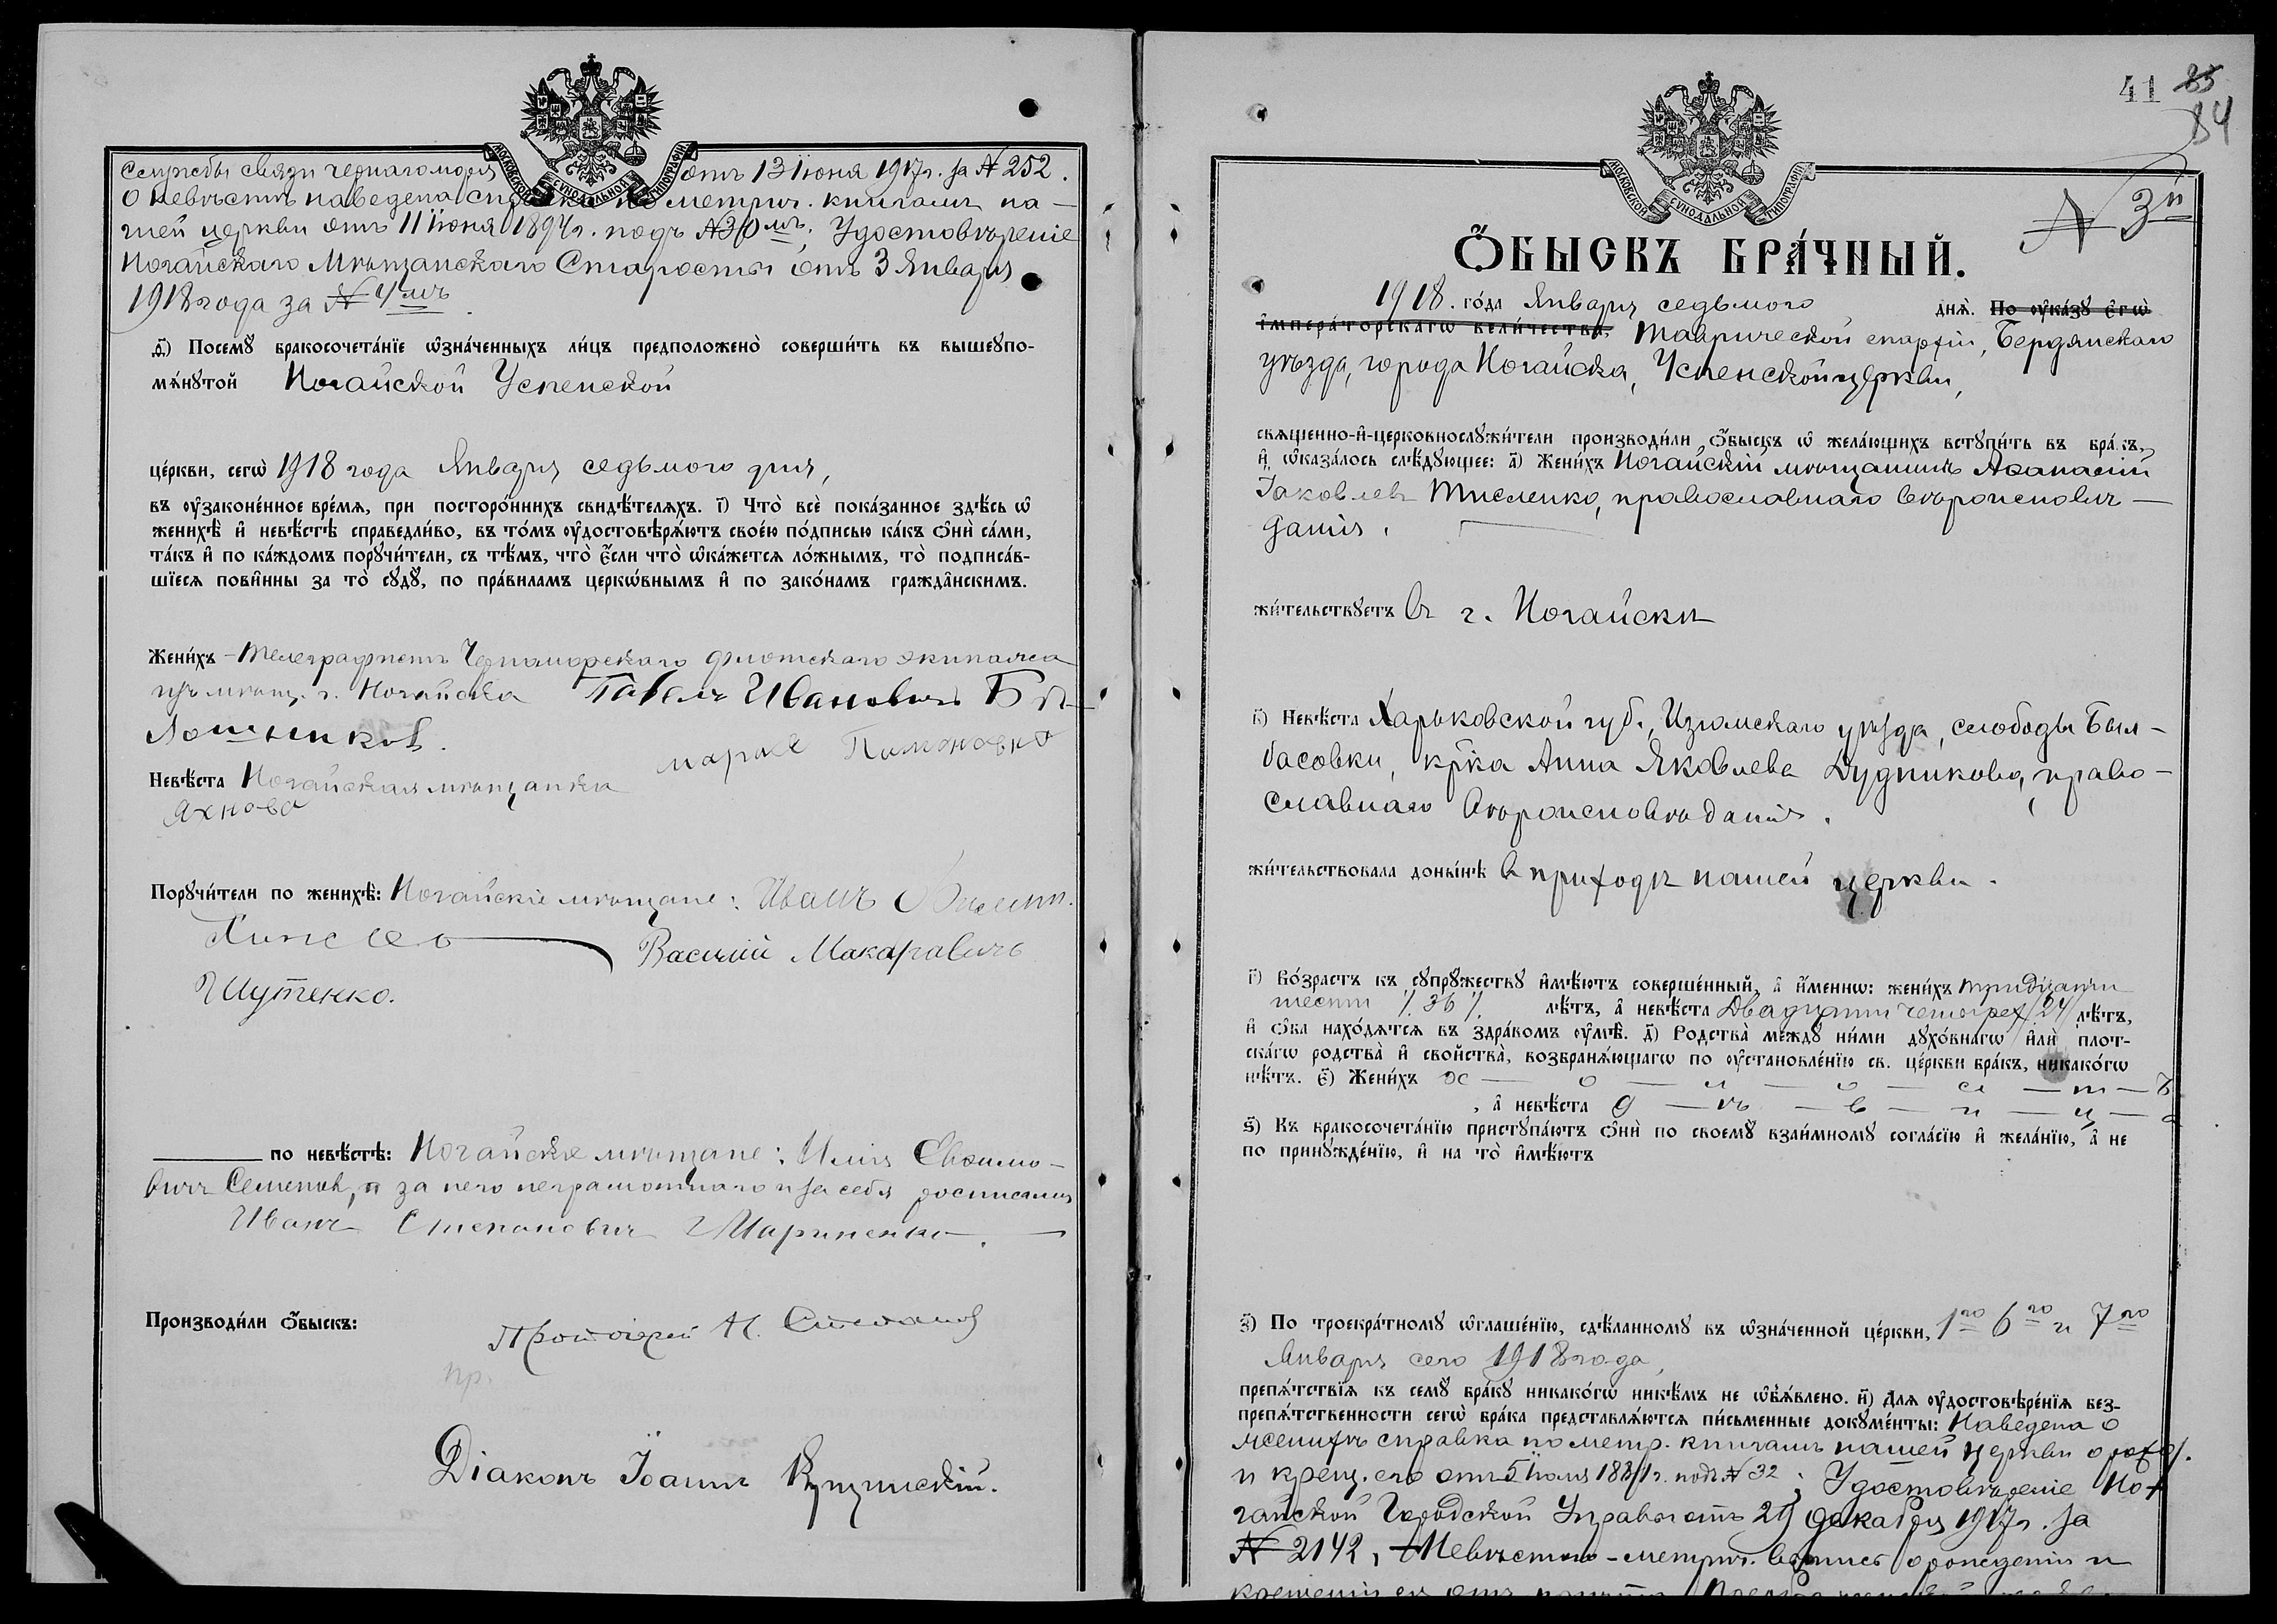 МОСКОВСКОЙ СѴНОДАЛЬНОЙ ТИПОГРАФІИ
Службы связи Чернаго моря отъ 13 іюня 1917 г. за № 252.
О невѣстѣ наведена справка по метрич. книгамъ на-
шей церкви отъ 11 іюня 1894 г. подъ № 30мъ. Удостовѣреніе
Ногайскаго Мѣщанскаго Старосты отъ 3 Января
1918 года за № 4мъ.
Посемꙋ̀ бракосочета́нїе ѡ҆зна́ченныхъ ли́цъ предположено̀ соверши́ть въ вышеꙋпо-
мѧ́нꙋтой Ногайской Успенской
це́ркви, сегѡ̀ 1918 года Января седьмого дня,
въ ᲂу҆законе́нное вре́мѧ, при посторо́ннихъ свидѣ́телѧхъ. і҃) Что̀ всѐ пока́занное здѣ́сь ѡ҆
женихѣ̀ и҆ невѣ́стѣ справедли́во, въ то́мъ ᲂу҆достовѣрѧ́ютъ свое́ю по́дписью ка́къ ѻ҆нѝ са́ми,
та́къ и҆ по ка́ждомъ порꙋчи́тели, съ тѣ́мъ, что̀ є҆́сли что̀ ѡ҆ка́жетсѧ ло́жнымъ, то̀ подписа́в-
шїесѧ пови́нны за то̀ сꙋдꙋ̀, по пра́виламъ церко́внымъ и҆ по зако́намъ гражда́нскимъ.
Жени́хъ - телеграфистъ Черноморскаго флотскаго экипажа
изъ мѣщ. г. Ногайска Павелъ Ивановичъ Бѣ-
лошников.
Невѣ́ста Ногайская мѣщанка Мария Пимоновна
Яхнова
Порꙋчи́тели по женихѣ̀: Ногайскіе мѣщане: Иванъ
Василий Макаравичъ
Шутенко.
по невѣ́стѣ: Ногайскіе мѣщане: Илія Евѳимо-
вичъ Семенов, а за него неграмотнаго и за себя росписался
Иванъ Степановичъ Мариненко.
Производи́ли ѻ҆́быскъ: Протоіерей Н. Степанов
пр.
Діаконъ Іоаннъ
41 85
84
МОСКОВСКОЙ СѴНОДАЛЬНОЙ ТИПОГРАФІИ
№ 3й
Ѻ҆́БЫСКЪ БРА́ЧНЫЙ.
1918. го́да Января седьмого днѧ̀. По ᲂу҆ка́зꙋ є҆гѡ̀
і҆мпера́торскагѡ вели́чества, Таврической епархіи, Бердянскаго
уѣзда, города Ногайска, Успенской церкви,
свѧще́нно-и҆-церковнослꙋжи́тели производи́ли ѻ҆́быскъ ѡ҆ жела́ющихъ встꙋпи́ть въ бра́къ,
и҆ ѡ҆каза́лось слѣ́дꙋющее: а҃) Жени́хъ Ногайскій мѣщанинъ Аѳанасій
Іаковлевъ Тисленко, православнаго вѣроисповѣ-
данія.
жи́тельствꙋетъ въ г. Ногайскѣ
в҃) Невѣ́ста Харьковской губ., Изюмскаго уѣзда, слободы Был-
басовки, кр-ка Анна Яковлева Дудникова, право-
славнаго вѣроисповѣданія.
жи́тельствовала доны́нѣ в приходѣ нашей церкви.
г҃) Во́зрастъ къ сꙋпрꙋ́жествꙋ и҆мѣ́ютъ соверше́нный, а҆ и҆́меннѡ: жени́хъ тридцати
шести /36/ лѣ́тъ, а҆ невѣ́ста двадцати четырех /24/ лѣ́тъ,
и҆ ѻ҆́ба нахо́дѧтсѧ въ здра́вомъ ᲂу҆мѣ̀. д҃) Родства̀ междꙋ̀ ни́ми дꙋхо́внагѡ и҆лѝ плот-
ска́гѡ родства̀ и҆ сво́йства, возбранѧ́ющагѡ по ᲂу҆становле́нїю св. це́ркви бра́къ, никако́гѡ
нѣ́тъ. є҃) Жени́хъ х — о — л — о — с — т — ъ
, а҆ невѣ́ста д — ѣ — в — и — ц — а
ѕ҃) Къ бракосочета́нїю пристꙋпа́ютъ ѻ҆нѝ по своемꙋ̀ взаи́мномꙋ согла́сїю и҆ жела́нїю, а҆ не
по принꙋжде́нїю, и҆ на то̀ и҆мѣ́ютъ
з҃) По троекра́тномꙋ ѡ҆глаше́нїю, сдѣ́ланномꙋ въ ѡ҆зна́ченной це́ркви, 1го 6го и 7го
Января сего 1918 года,
препѧ́тствїѧ къ семꙋ̀ бра́кꙋ никако́гѡ никѣ́мъ не ѡ҆б̾ѧ́влено. и҃) Длѧ ᲂу҆достовѣре́нїѧ без-
препѧ́тственности сегѡ̀ бра́ка представлѧ́ютсѧ пи́сьменные докꙋме́нты: Наведена о
женихѣ справка по метр. книгамъ нашей церкви о рожд.
и крещ. его отъ 5 іюля 1881 г. подъ № 32; Удостовѣреніе Но-
гайской Городской Управы отъ 29 декабря 1917 г. за
№ 2142, Невѣстою - метрич. выпись о рожденіи и
крещеніи ея отъ